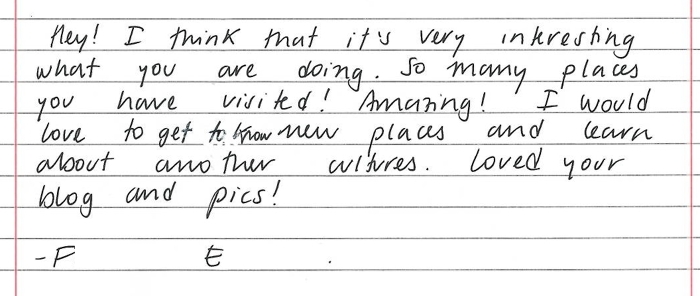 Hey! I think that it's very interesting
what you are doing. So many places
you have visited! Amazing! I would
love to get to know new places and learn
about another cultures. Loved your
blog and pics!
-F E .